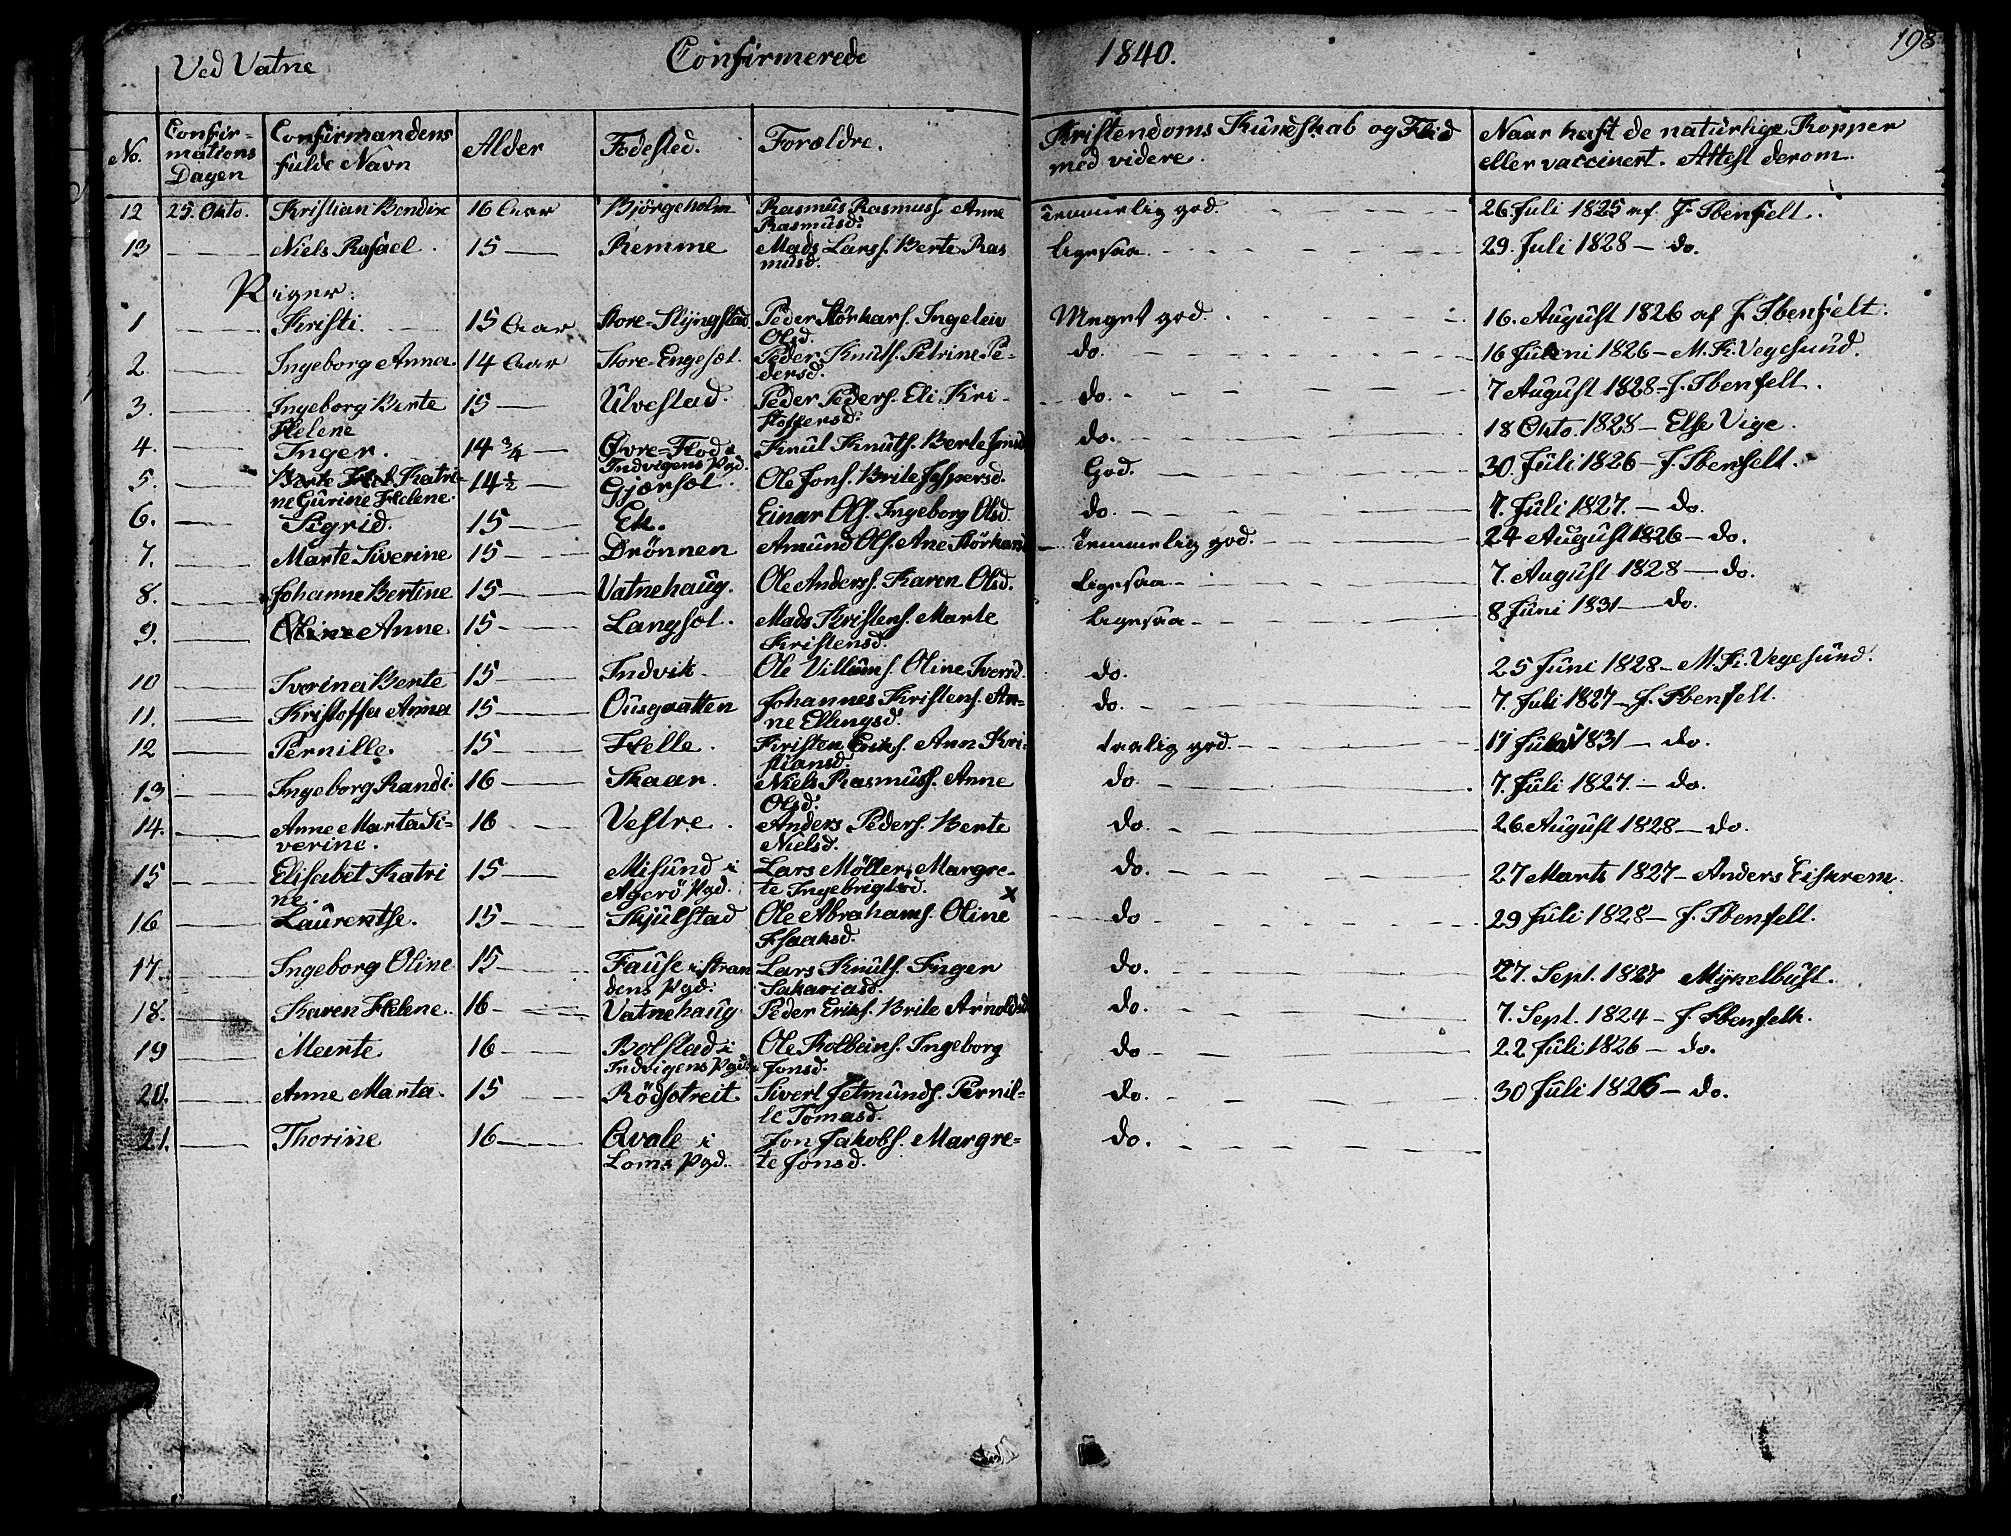 Ved Vatne Confirmerede 1840. 198
No. Confir- Confirmandens Alder Fødested. Forældre. Kristendoms Kundskab og Flid Naar haft de naturlige Kopper
mations fulde Navn med videre. eller vaccinert. Attest derom.
Dagen
12 25. Okto. Kristian Bendix 16 Aar Björgeholm Rasmus Rasmuss. Anne Temmelig god. 26. Juli 1825 af J. Ibenfelt.
Rasmusd.
13 Niels Rafael. 15 — Remme Mads Larss. Berte Ras ligesaa 29. Juli 1828 — do.
musd.
Piger:
1 Kristi. 15 Aar Store-Slyngstad. Peder Störkars. Ingeleiv Meget god. 16. August 1826 af J. Ibenfelt.
Olsd.
2. Ingeborg Anna. 14 Aar Store-Engeset. Peder Knuts. Petrine Pe- do. 16 Juni 1826 — M. K. Vegesund.
dersd.
3. Ingeborg Berte 15 — Ulvestad. Peder Peders. Eli Kri- do. 7 August 1828 — J. Ibenfelt.
Helene stoffersd.
4. Inger. 14 3/4 — Øvre-Flod i Knut Knuts. Berte Jonsd. do. 18 Okto. 1828 — Else Vige.
Indvigens Pgd.
5. Berte Katri- 14 1/2 — Gjærset. Ole Jons. Brite Jespersd. God. 30 Juli 1826 — J. Ibenfelt.
ne Gurine Helene.
6. Sigrid. 15 — Ek. Einar Ols. Ingeborg Olsd. do. 7. Juli 1827. — do.
7. Marte Siverine 15 — Drönnen Amund Ols. Ane Störkarsd. Temmelig god. 24 August 1826 — do.
8. Johanne Bertine 15 — Vatnehaug. Ole Anders. Karen Olsd. Ligesaa 7. August 1828 — do.
9. Oline Anne 15 — Langset. Mads Kristens. Marte Ligesaa 8 Juni 1831 — do.
Kristensd.
10 Iverina Berte 15 — Indvik Ole Villums. Oline Iversd. do. 25 Juni 1828 — M. K. Vegesund.
11. Kristoffa Anna 15 — Ousgaatten Johannes Kristens. An- do. 7. Juli 1827 — J. Ibenfelt.
ne Ellingsd.
12 Pernille. 15 — Helle. Kristen Eriks. Ann Kri- taalig god. 17 Juli 1831 — do.
stiansd.
13 Ingeborg Randi. 16 — Skaar. Niels Rasmuss. Anne do. 7. Juli 1827. — do.
Olsd.
14. Anne Marta Si- 16 — Vestre. Anders Peders. Berte do. 26. August 1828 — do.
verine. Nielsd.
15 Elisabet Katri 15 — Misund i Lars Möller, Margre- do. 27 Marts 1827 — Anders Eiskrem.
ne. Agerö Pgd. te Ingebrigtsd. x
16 Laurentse. 15 — Skjulstad Ole Abrahams. Oline do 29 Juli 1828 — J. Ibenfelt.
Isaaksd.
17. Ingeborg Oline 15 — Fause i Stran Lars Knuts. Inger do. 27. Sept. 1827 Myxelbust.
dens Pgd. Sakariasd.
18. Karen Helene. 16 — Vatnehaug Peder Eriks. Brite Arnoldsd do. 7. Sept. 1824 — J. Ibenfelt.
19 Marte 16 — Bolstad i Ole Kolbeins. Ingeborg do 22 Juli 1826 — do.
Indvigens Pgd. Jonsd.
20. Anne Marta. 15 Rödsetreit Sivert Jetmunds. Pernil- do. 30 Juli 1826 — do.
le Tomasd.
21. Thorine 16 — Qvale i Jon Jakobs. Margre- do.
Loms Pgd. te Jonsd.